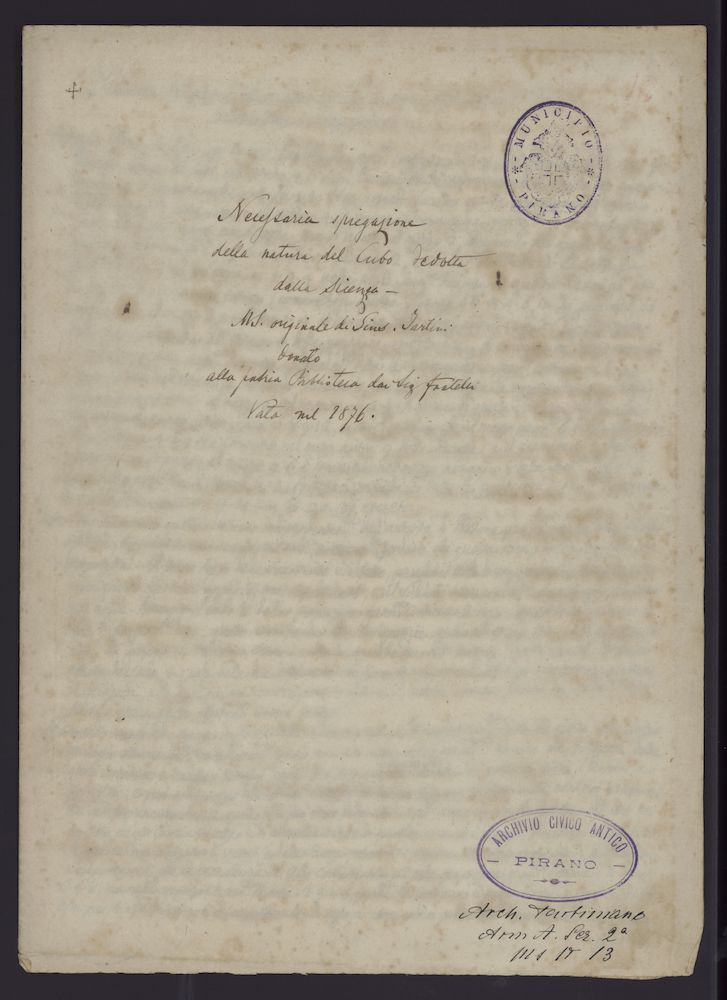 MUNICIPIO
PIRANO
Necessaria spiegazione
della natura del Cubo dedotta
dalla Scienza —
MS. originale di Gius. Tartini
donato
alla patria Biblioteca dai Sig. fratelli
Vatta nel 1876.
ARCHIVIO CIVICO ANTICO
PIRANO
Arch. Tartiniano
Arm A. Ser. 2ª
Ms 13